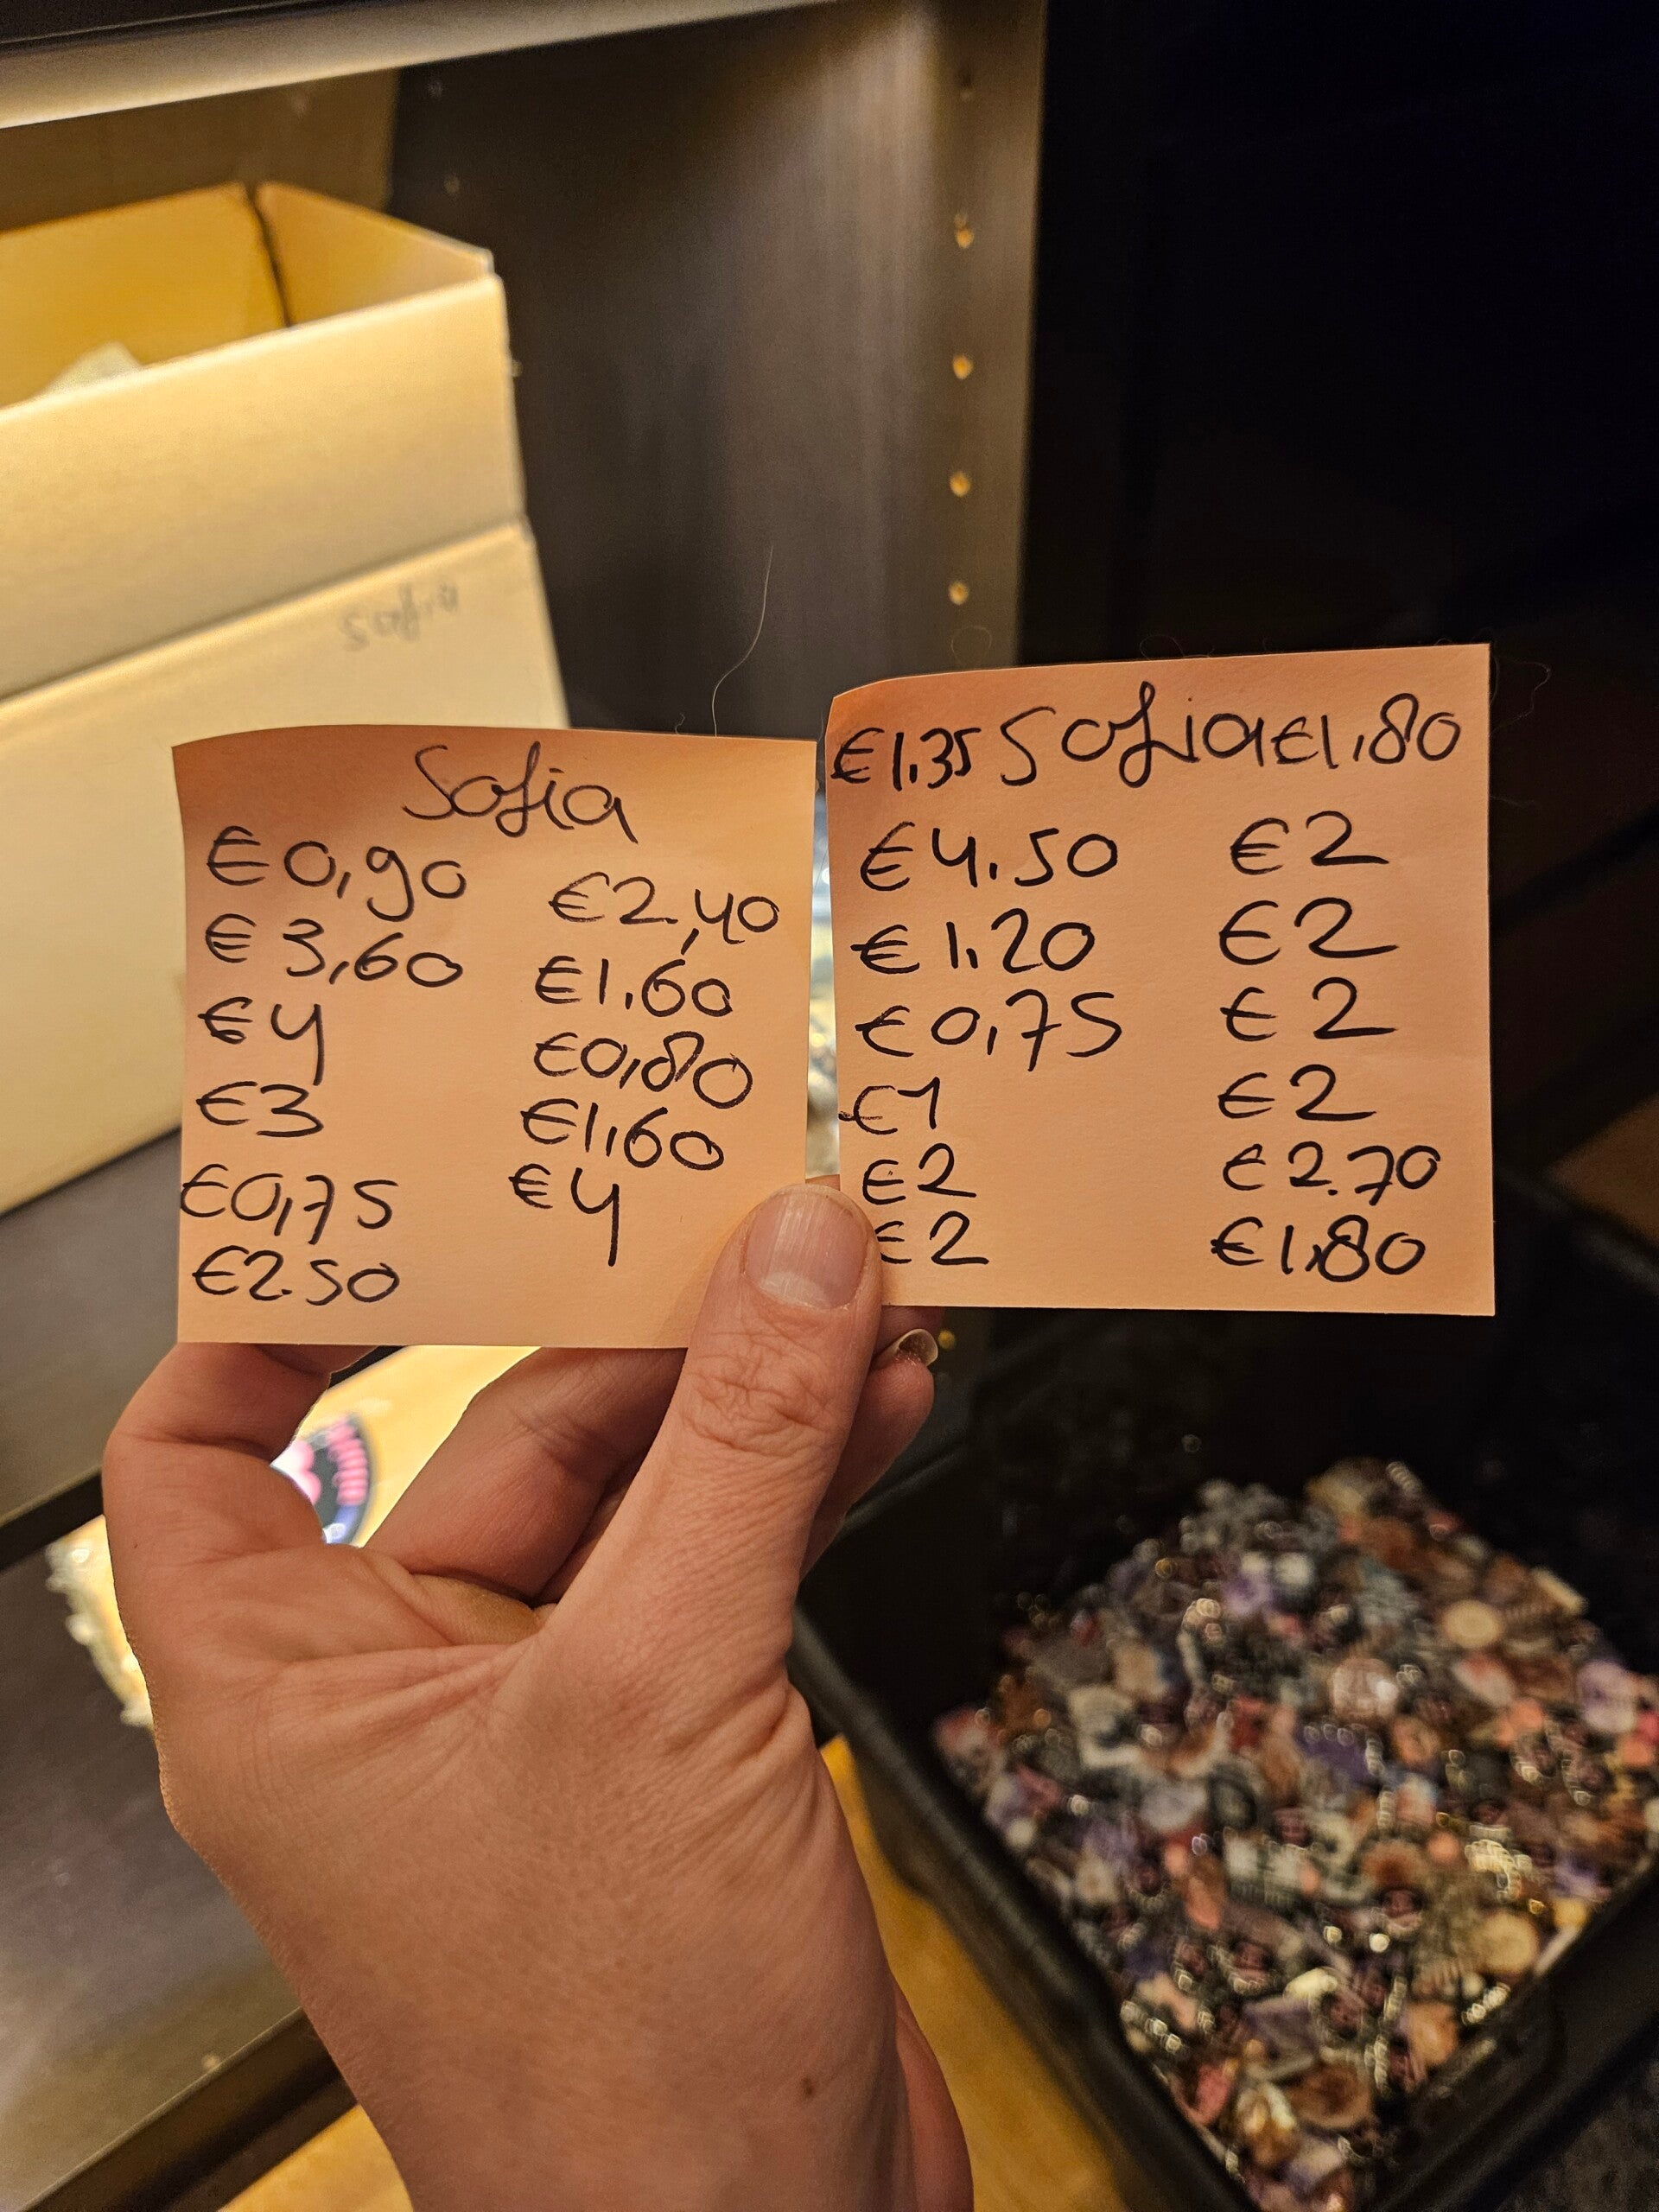 Sofia
Sofia
€0,90
€3,60
€4
€3
€0,75
€2.50
€2,40
€1.60
€0,80
€1,60
€4
€1.35 Sofia €1,80
€4.50
€1.20
€0,75
€1
€2
€2
€2
€2
€2
€2
€2.70
€1,80